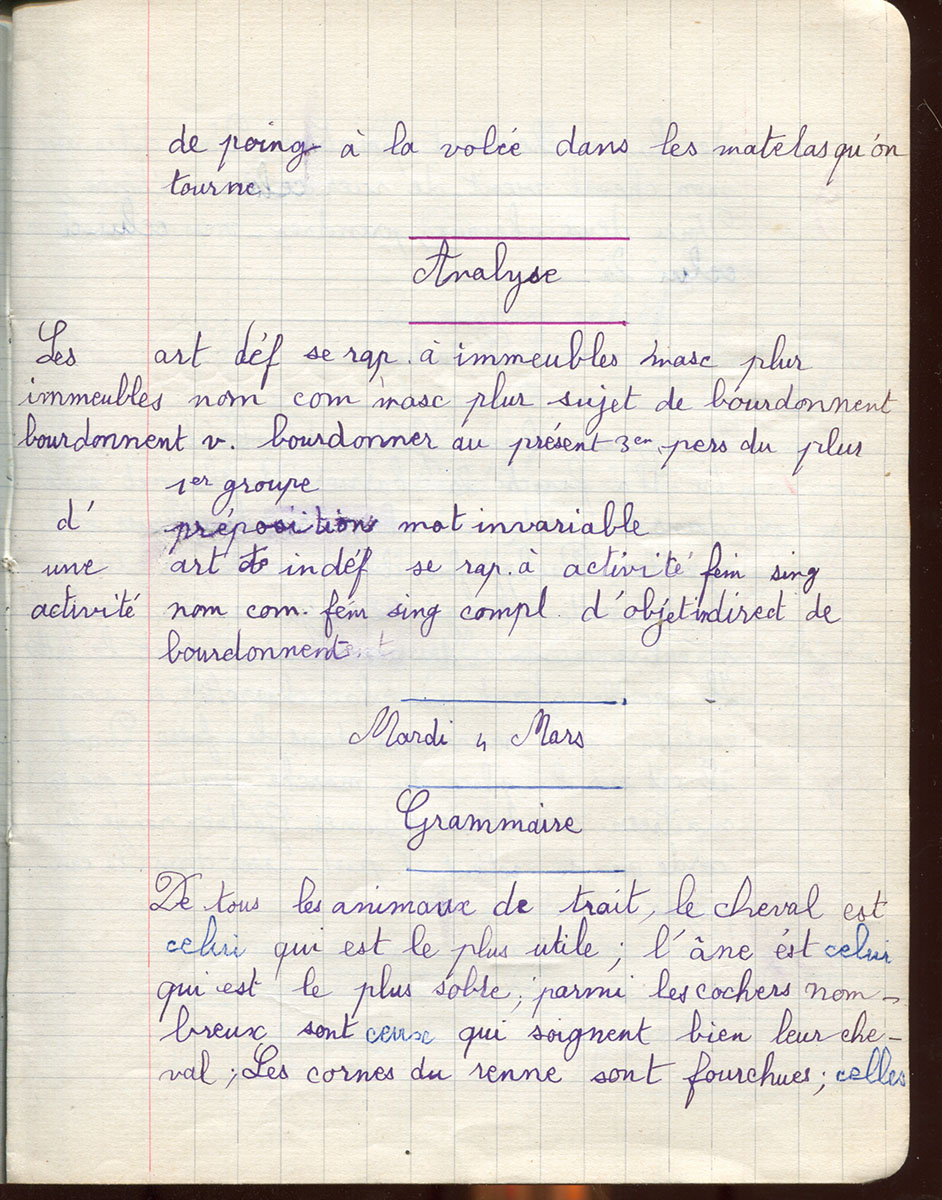 de poing à la volée dans les matelas qu'on
tourne
Analyse
Les art déf se rap. à immeubles masc plur
immeubles nom com masc plur sujet de bourdonnent
bourdonnent v. bourdonner au présent 3en pers du plur
1er groupe
d' préposition mot invariable
une art indéf se rap. à activité fém sing
activité nom com. fém sing compl d'objet indirect de
bourdonnent
Mardi 4 Mars
Grammaire
De tous les animaux de trait, le cheval est
celui qui est le plus utile ; l'âne ést celui
qui est le plus sobre ; parmi les cochers nom-
breux sont ceux qui soignent bien leur che-
val ; Les cornes du renne sont fourchues ; celles